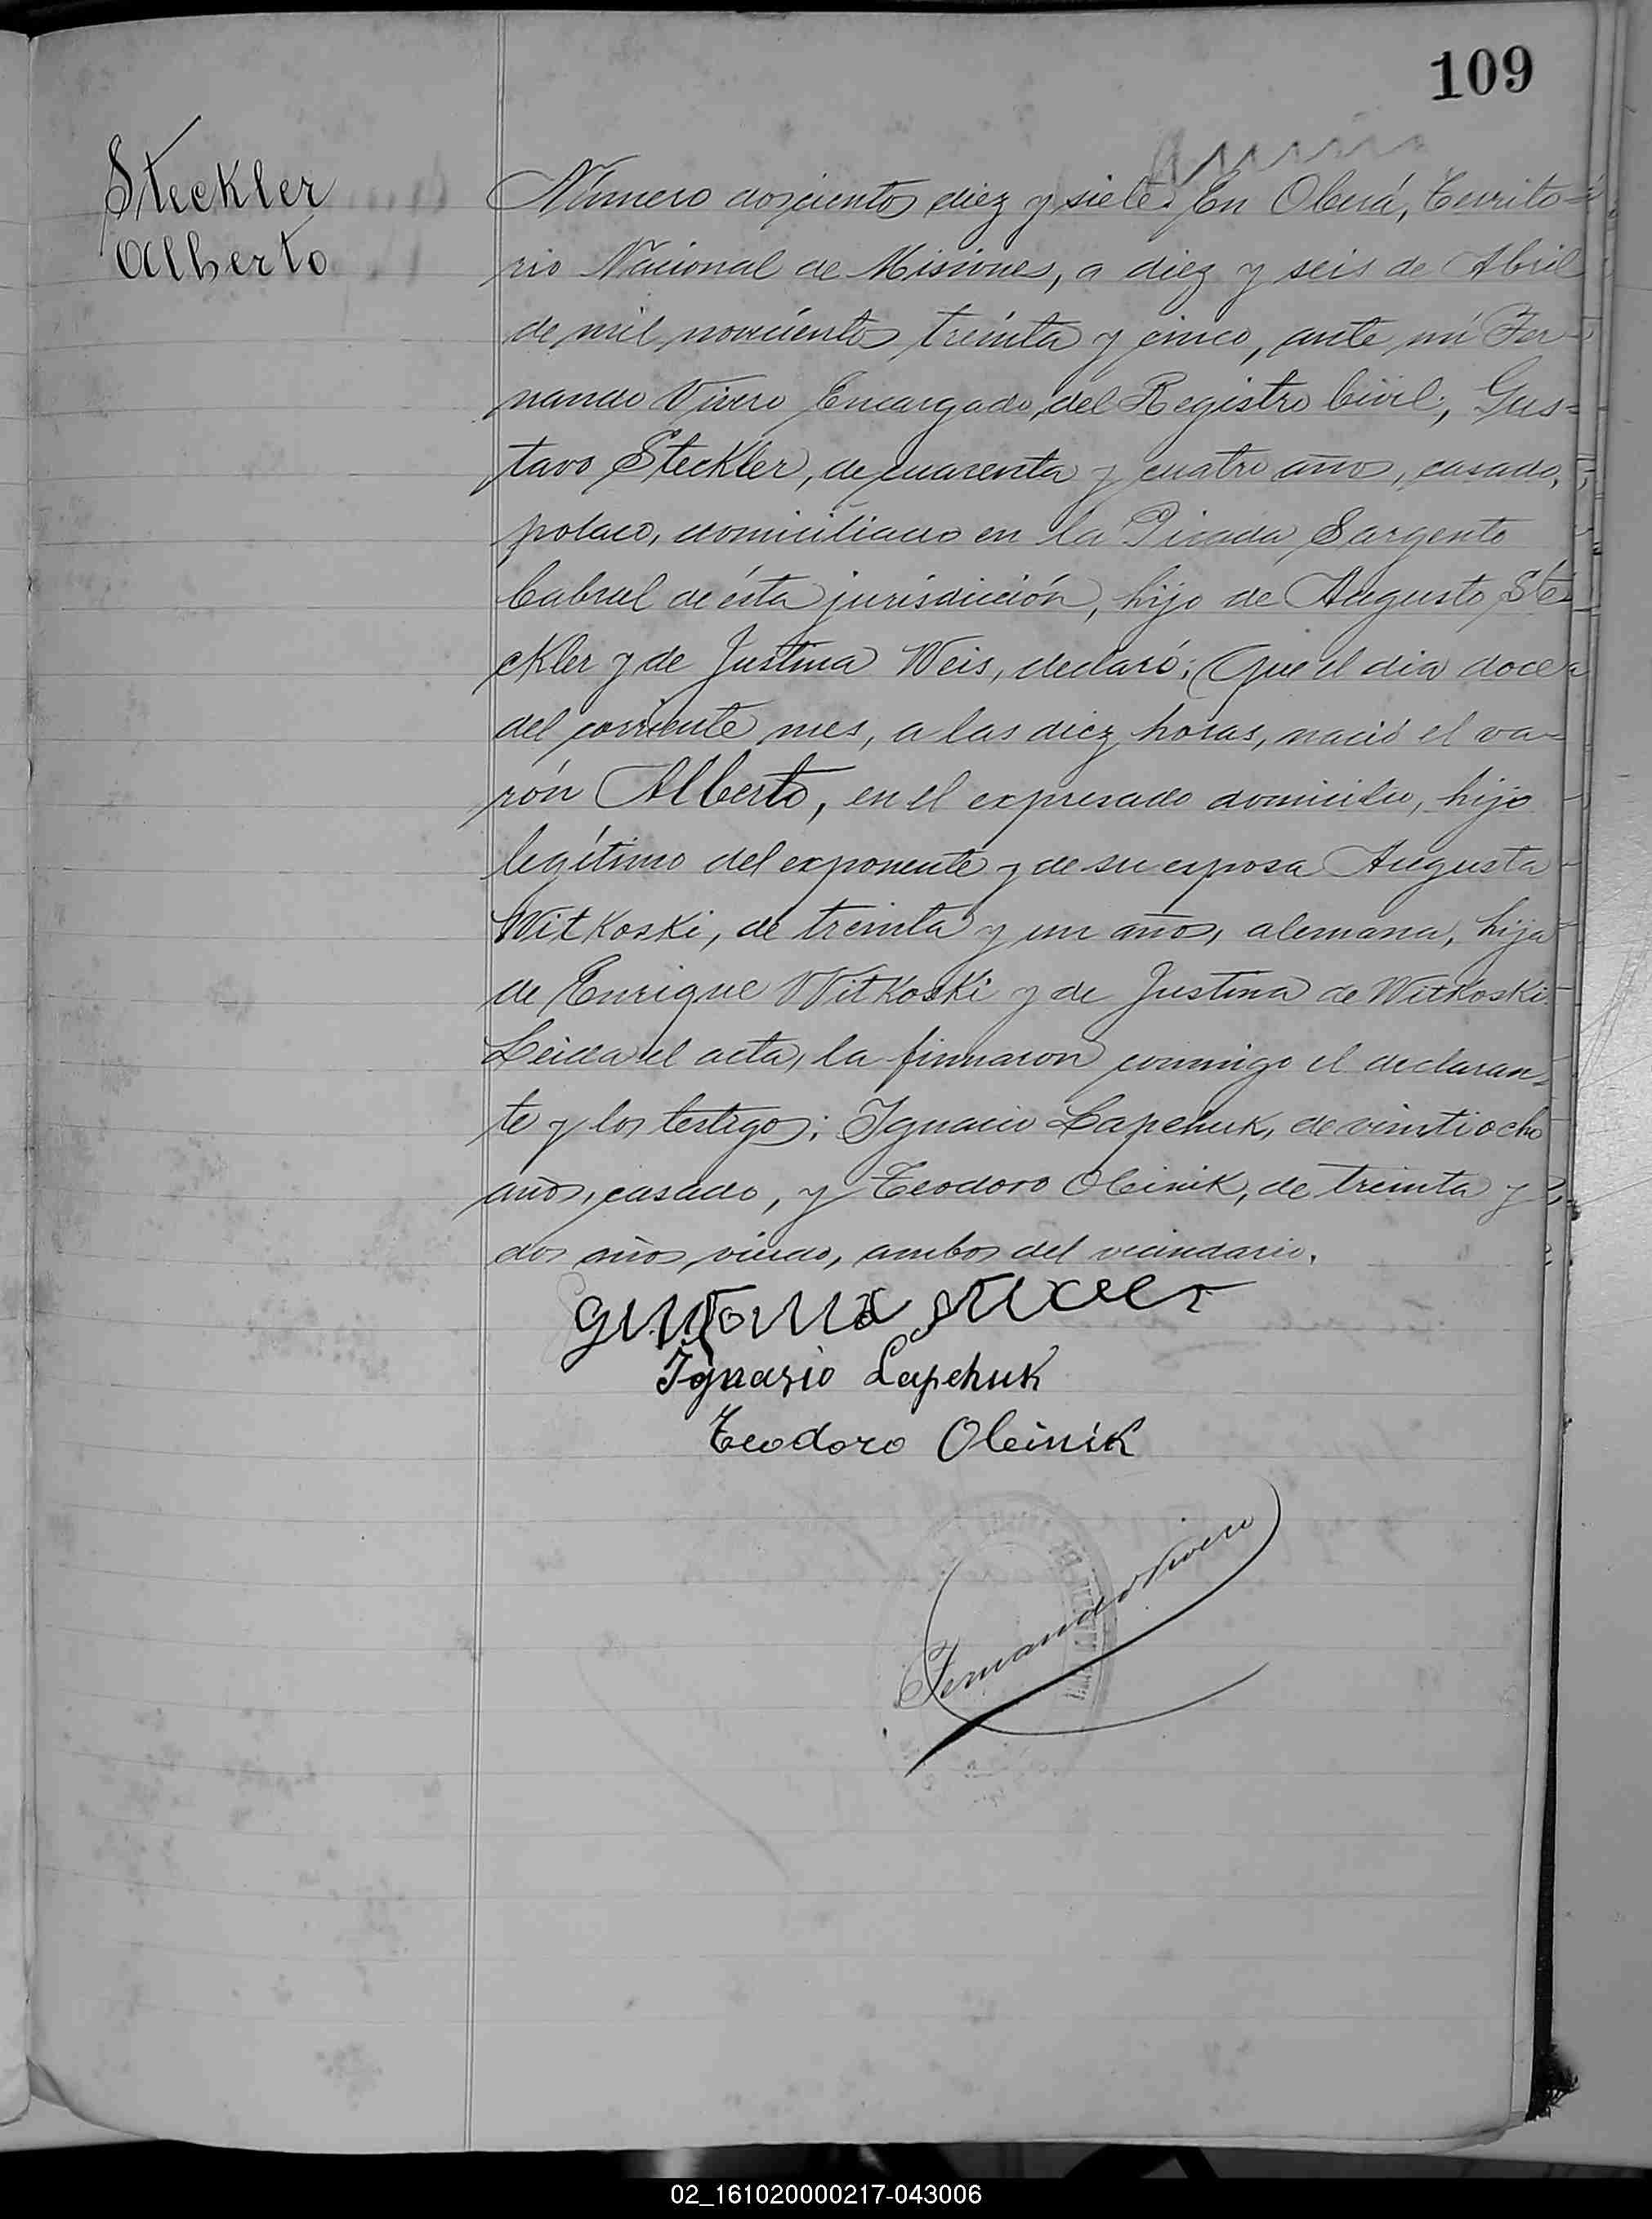 109
Steckler
Alberto
Número doscientos diez y siete. En Oberá, Territo-
rio Nacional de Misiones, a diez y seis de Abril
de mil novecientos treinta y cinco, ante mí Fer-
nando Vivero Encargado del Registro Civil, Gus-
tavo Steckler, de cuarenta y cuatro años, casado,
polaco, domiciliado en la Picada Sargento
Cabral de ésta jurisdicción, hijo de Augusto Ste-
ckler y de Justina Weis, declaró: Que el dia doce
del corriente mes, a las diez horas, nació el va-
rón Alberto, en el expresado domicilio, hijo
legítimo del exponente y de su esposa Augusta
Witkoski, de treinta y un años, alemana, hija
de Enrique Witkoski y de Justina de Witkoski
Leida el acta, la firmaron conmigo el declaran-
te y los testigos: Ignacio Lapchuk, de vintiocho
años, casado, y Teodoro Oleinik, de treinta y
dos años, viudo, ambos del vecindario.
Ignazio Lapchuk
Teodoro Oleinik
Fernando Vivero
02_161020000217-043006